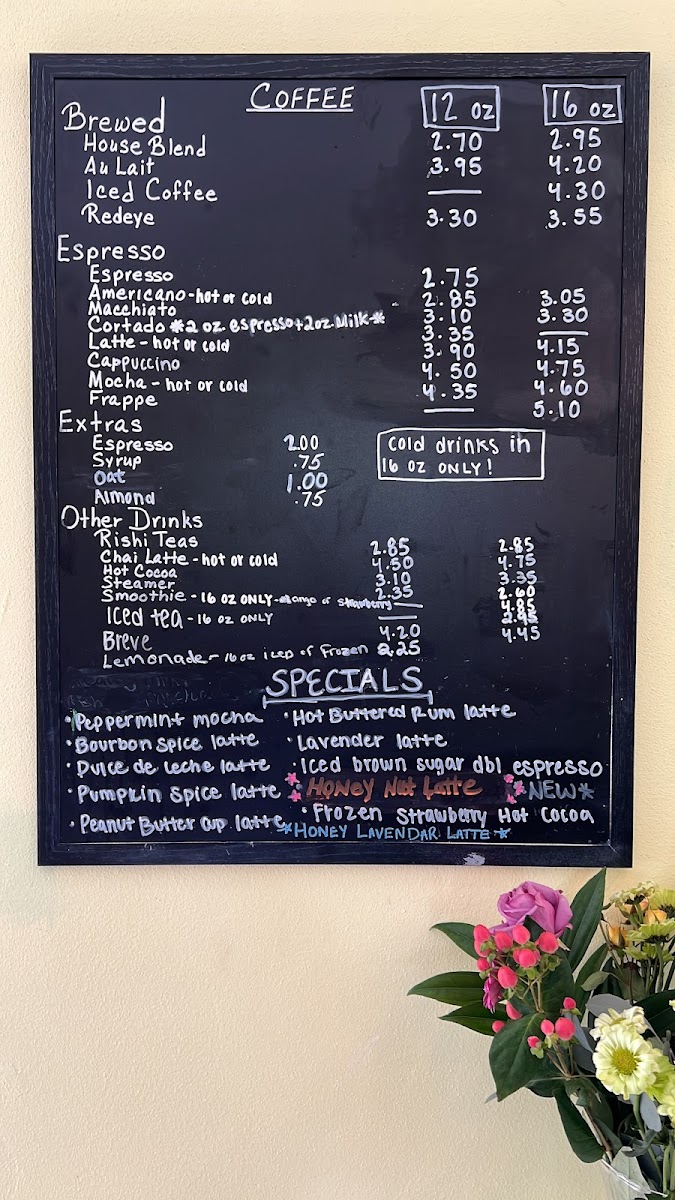 COFFEE 12 oz 16 oz
Brewed
House Blend 2.70 2.95
Au Lait 3.95 4.20
Iced Coffee — 4.30
Redeye 3.30 3.55
Espresso
Espresso 2.75
Americano - hot or cold 2.85 3.05
Macchiato 3.10 3.30
Cortado *2 oz. espresso + 2oz. Milk* 3.35 —
Latte - hot or cold 3.90 4.15
Cappuccino 4.50 4.75
Mocha - hot or cold 4.35 4.60
Frappe — 5.10
Extras
Espresso 2.00
Syrup .75
Oat 1.00
Almond .75
cold drinks in
16 oz ONLY!
Other Drinks
Rishi Teas 2.85 2.85
Chai Latte - hot or cold 4.50 4.75
Hot Cocoa 3.10 3.35
Steamer 2.35 2.60
Smoothie - 16 oz ONLY - Mango or Strawberry — 4.85
Iced tea - 16 oz ONLY — 2.95
Breve 4.20 4.45
Lemonade - 16 oz iced or Frozen 2.25
SPECIALS
• Peppermint mocha • Hot Buttered Rum latte
• Bourbon spice latte • Lavender latte
• Dulce de leche latte • Iced brown sugar dbl espresso
• Pumpkin spice latte • Honey Nut Latte *NEW*
• Peanut Butter cup latte • Frozen Strawberry Hot Cocoa
*HONEY LAVENDAR LATTE*